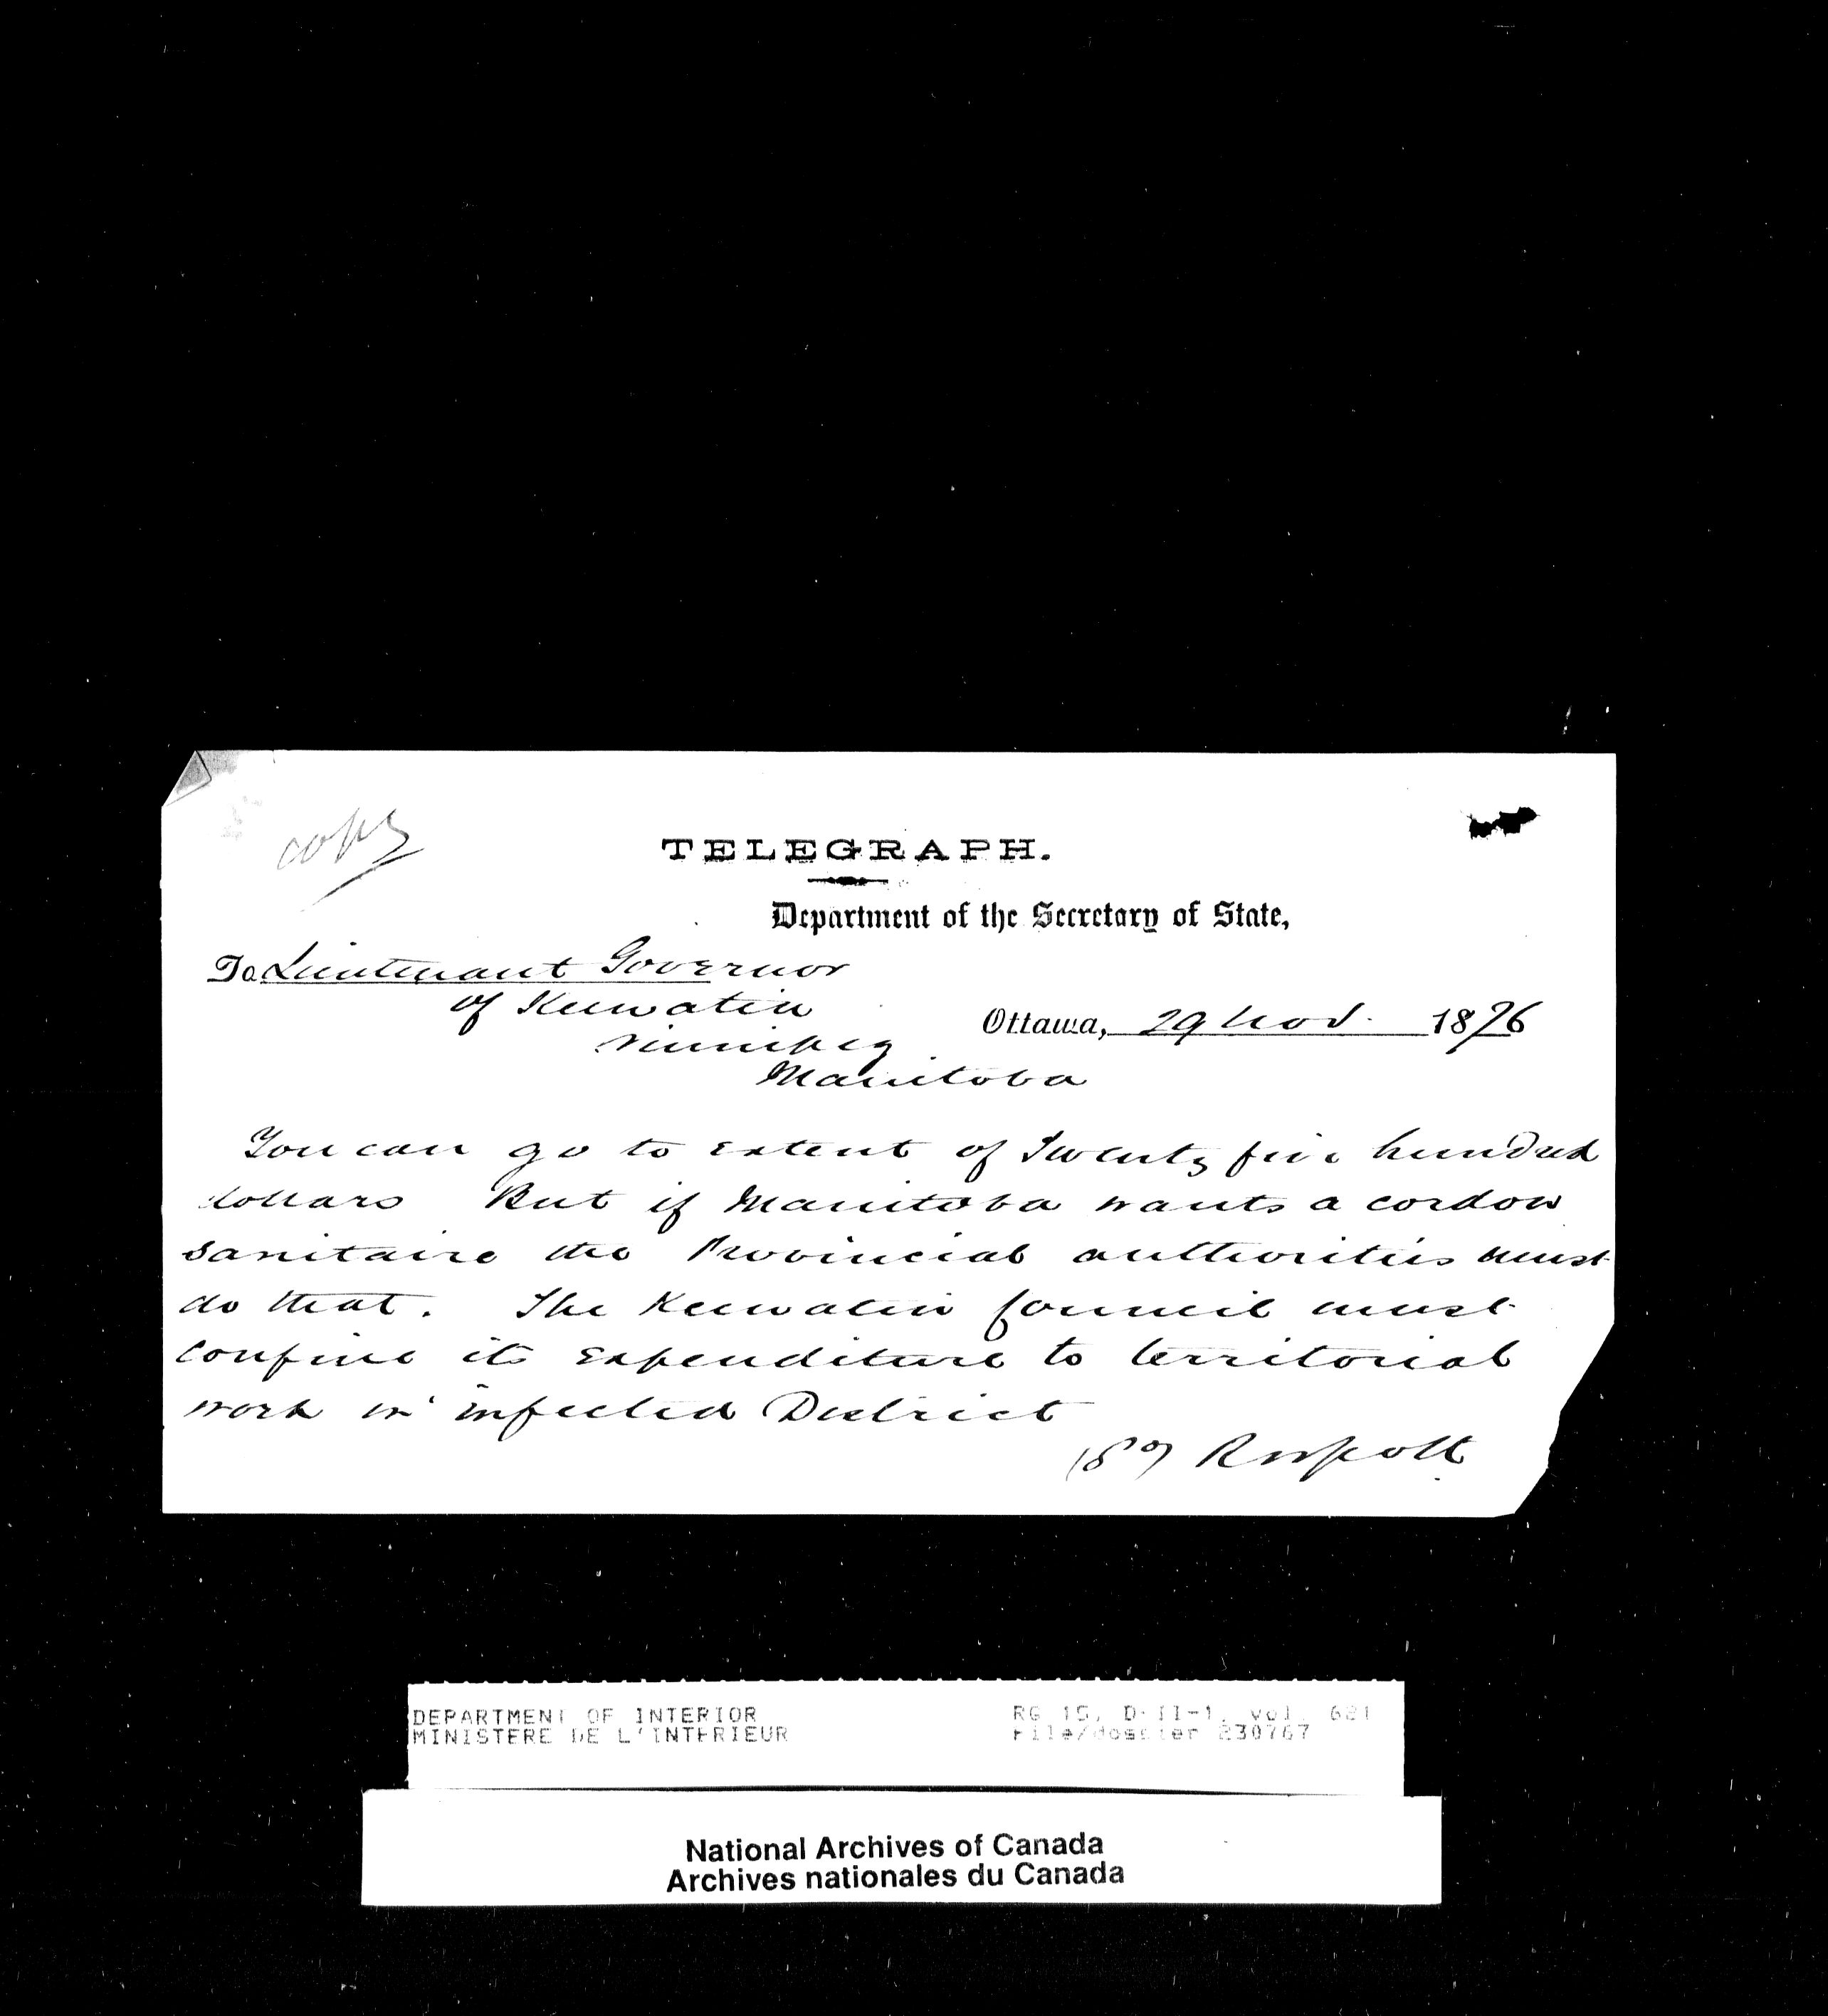 copy
TELEGRAPH.
Department of the Secretary of State,
To Lieutenant Governor
of Keewatin
Ottawa, 29 Nov. 1876
Winnipeg
Manitoba
You can go to extent of Twenty five hundred
dollars But if Manitoba wants a cordon
sanitaire the Provincial authorities must
do that. The Keewatin Council must
confine its expenditure to territorial
work in infected District
(Sd) RWScott
DEPARTMENT OF INTERIOR
MINISTERE DE L'INTERIEUR
RG 15, D-II-1, vol. 621
File/dossier 230767
National Archives of Canada
Archives nationales du Canada